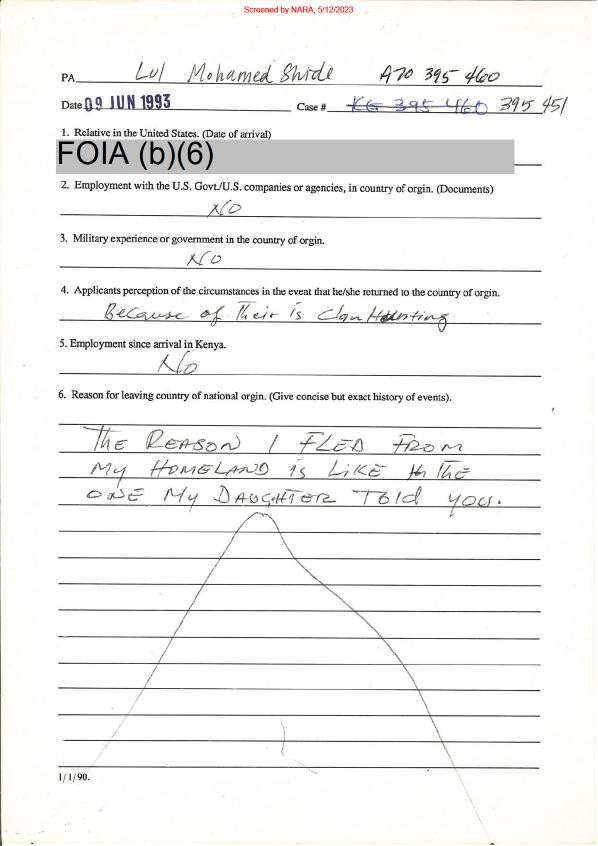 Screened by NARA, 5/12/2023
PA Lul Mohamed Shide A70 395 460
Date 09 JUN 1993 Case # KG 395 460 395 451
1. Relative in the United States. (Date of arrival)
FOIA (b)(6)
2. Employment with the U.S. Govt./U.S. companies or agencies, in country of orgin. (Documents)
NO
3. Military experience or government in the country of orgin.
NO
4. Applicants perception of the circumstances in the event that he/she returned to the country of orgin.
Because of Their is Clan Hunting
5. Employment since arrival in Kenya.
No
6. Reason for leaving country of national orgin. (Give concise but exact history of events).
THE REASON I FLED FROM
MY HOMELAND is LIKE THE
ONE MY DAUGHTER TOld you.
1/1/90.